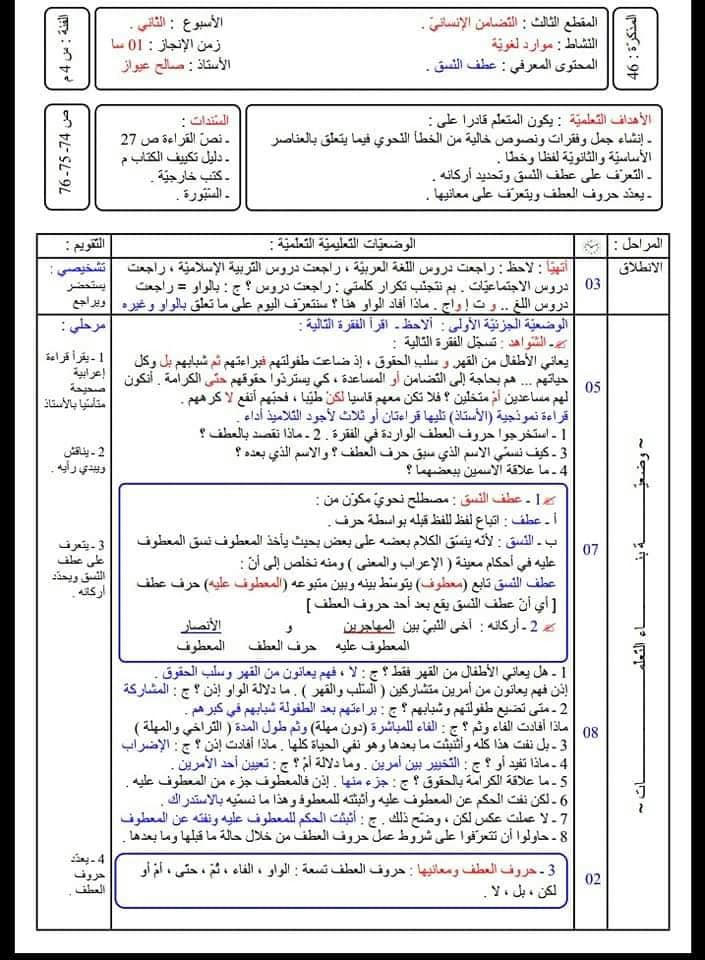 المذكرة : 46
المقطع الثالث : التضامن الإنسانيّ .
النشاط : موارد لغويّة
المحتوى المعرفي : عطف النسق .
الأسبوع : الثاني .
زمن الإنجاز : 01 سا
الأستاذ : صالح عيواز
الفئة : س 4 م
الأهداف التعلمية : يكون المتعلم قادرا على :
ـ إنشاء جمل وفقرات ونصوص خالية من الخطأ النحوي فيما يتعلق بالعناصر
الأساسية والثانوية لفظا وخطا .
ـ التعرّف على عطف النسق وتحديد أركانه .
ـ يعدّد حروف العطف ويتعرّف على معانيها .
السّندات :
ـ نصّ القراءة ص 27
ـ دليل تكييف الكتاب م
ـ كتب خارجيّة .
ـ السّبّورة .
ص 74- 75- 76
المراحل :
الوضعيّات التعليميّة التعلميّة :
التقويم :
الانطلاق
03
أتهيّأ : لاحظ : راجعت دروس اللغة العربيّة ، راجعت دروس التربية الإسلاميّة ، راجعت
دروس الاجتماعيّات . بم نتجنّب تكرار كلمتي : راجعت دروس ؟ ج : بالواو = راجعت
دروس اللغ .. و ت إ واج . ماذا أفاد الواو هنا ؟ سنتعرّف اليوم على ما تعلق بالواو وغيره
تشخيصي :
يستحضر
ويراجع
~ وضعيّـة بنـاء التعلمـات ~
05
الوضعيّة الجزئيّة الأولى : ألاحظ ـ اقرأ الفقرة التالية :
ـ الشّواهد : تسجّل الفقرة التالية :
يعاني الأطفال من القهر و سلب الحقوق ، إذ ضاعت طفولتهم فبراءتهم ثم شبابهم بل وكل
حياتهم ... هم بحاجة إلى التضامن أو المساعدة ، كي يستردّوا حقوقهم حتّى الكرامة . أنكون
لهم مساعدين أمْ متخلين ؟ فلا تكن معهم قاسيا لكنْ طيّبا ، فحبّهم أنفع لا كرههم .
قراءة نموذجية (الأستاذ) تليها قراءتان أو ثلاث لأجود التلاميذ أداء .
1 - استخرجوا حروف العطف الواردة في الفقرة . 2 - ماذا نقصد بالعطف ؟
3 - كيف نسمّي الاسم الذي سبق حرف العطف ؟ والاسم الذي بعده ؟
4 - ما علاقة الاسمين ببعضهما ؟
مرحلي :
1 - يقرأ قراءة
إعرابية
صحيحة
متأسّيا بالأستاذ
2 - يناقش
ويبدي رأيه .
07
1 - عطف النّسق : مصطلح نحويّ مكوّن من :
أ ـ عطف : اتباع لفظ للفظ قبله بواسطة حرف .
ب ـ النّسق : لأنه ينسّق الكلام بعضه على بعض بحيث يأخذ المعطوف نسق المعطوف
عليه في أحكام معينة ( الإعراب والمعنى ) ومنه نخلص إلى أنّ :
عطف النّسق تابع (معطوف) يتوسّط بينه وبين متبوعه (المعطوف عليه) حرف عطف
[ أي أنّ عطف النّسق يقع بعد أحد حروف العطف ]
2 - أركانه : آخى النّبيّ بين المهاجرين و الأنصار
المعطوف عليه حرف العطف المعطوف
3 - يتعرف
على عطف
النسق ويحدّد
أركانه .
08
1 - هل يعاني الأطفال من القهر فقط ؟ ج : لا ، فهم يعانون من القهر وسلب الحقوق .
إذن فهم يعانون من أمرين متشاركين ( السّلب والقهر ) . ما دلالة الواو إذن ؟ ج : المشاركة
2 - متى تضيع طفولتهم وشبابهم ؟ ج : براءتهم بعد الطفولة شبابهم في كبرهم .
ماذا أفادت الفاء وثم ؟ ج : الفاء للمباشرة (دون مهلة) وثم طول المدة ( التراخي والمهلة )
3 - بل نفت هذا كله وأثبتت ما بعدها وهو نفي الحياة كلها . ماذا أفادت إذن ؟ ج : الإضراب
4 - ماذا تفيد أو ؟ ج : التخيير بين أمرين . وما دلالة أمْ ؟ ج : تعيين أحد الأمرين .
5 - ما علاقة الكرامة بالحقوق ؟ ج : جزء منها . إذن فالمعطوف جزء من المعطوف عليه .
6 - لكن نفت الحكم عن المعطوف عليه وأثبتته للمعطوف وهذا ما نسمّيه بالاستدراك .
7 - لا عملت عكس لكن ، وضّح ذلك . ج : أثبتت الحكم للمعطوف عليه ونفته عن المعطوف
8 - حاولوا أن تتعرّفوا على شروط عمل حروف العطف من خلال حالة ما قبلها وما بعدها .
02
3 - حروف العطف ومعانيها : حروف العطف تسعة : الواو ، الفاء ، ثمّ ، حتى ، أمْ أو
لكن ، بل ، لا .
4 - يعدّد
حروف
العطف .